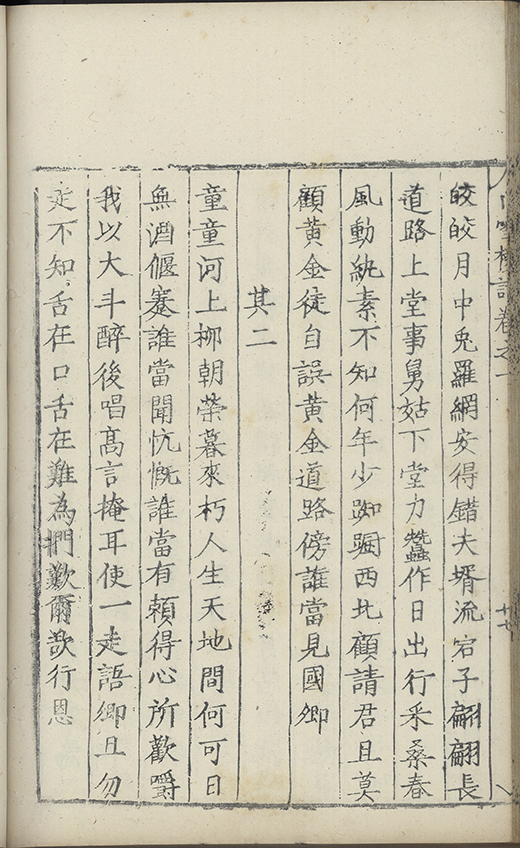 白雪樓詩卷之一 廿七
皎皎月中兎羅網安得錯夫壻流宕子翩翩長
道路上堂事舅姑下堂力蠶作日出行采桑春
風動紈素不知何年少踟躕西北顧請君且莫
顧黃金徒自誤黃金道路傍誰當見國卿
其二
童童河上柳朝榮暮來朽人生天地間何可日
無酒偃蹇誰當聞忼慨誰當有賴得心所歡嚼
我以大斗醉後唱髙言掩耳使一走語卿且勿
走不知舌在口舌在難為捫歎爾歌行恩